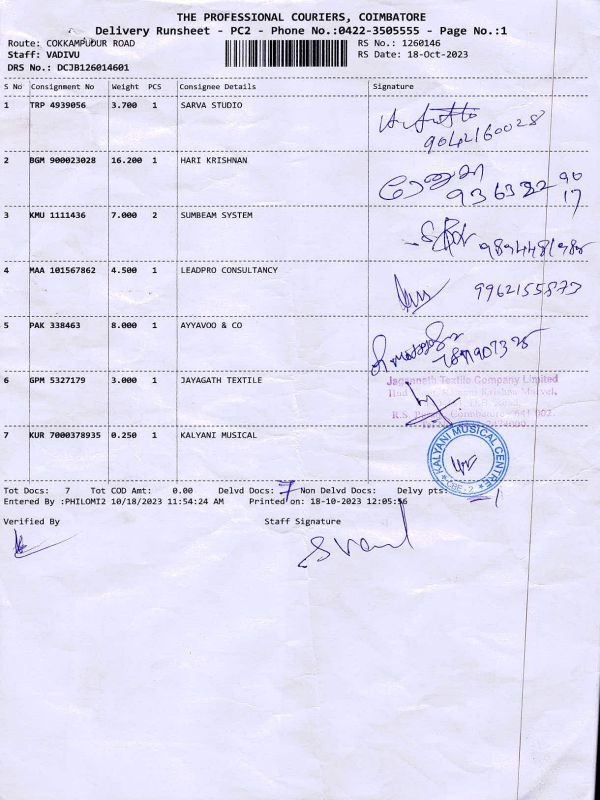 THE PROFESSIONAL COURIERS, COIMBATORE
Delivery Runsheet - PC2 - Phone No.:0422-3505555 - Page No.:1
Route: COKKAMPUDUR ROAD RS No.: 1260146
Staff: VADIVU RS Date: 18-Oct-2023
DRS No.: DCJB126014601
S No Consignment No Weight PCS Consignee Details Signature
1 TRP 4939056 3.700 1 SARVA STUDIO
9042160028
2 BGM 900023028 16.200 1 HARI KRISHNAN
3 KMU 1111436 7.000 2 SUMBEAM SYSTEM
4 MAA 101567862 4.500 1 LEADPRO CONSULTANCY
9962155873
5 PAK 338463 8.000 1 AYYAVOO & CO
6 GPM 5327179 3.000 1 JAYAGATH TEXTILE
Jagannath Textile Company Limited
Coimbatore - 641 002.
7 KUR 7000378935 0.250 1 KALYANI MUSICAL
KALYANI MUSICAL CENTRE
CBE-2
Tot Docs: 7 Tot COD Amt: 0.00 Delvd Docs: 7 Non Delvd Docs: Delvy pts:
Entered By :PHILOMI2 10/18/2023 11:54:24 AM Printed on: 18-10-2023 12:05:56
Verified By Staff Signature